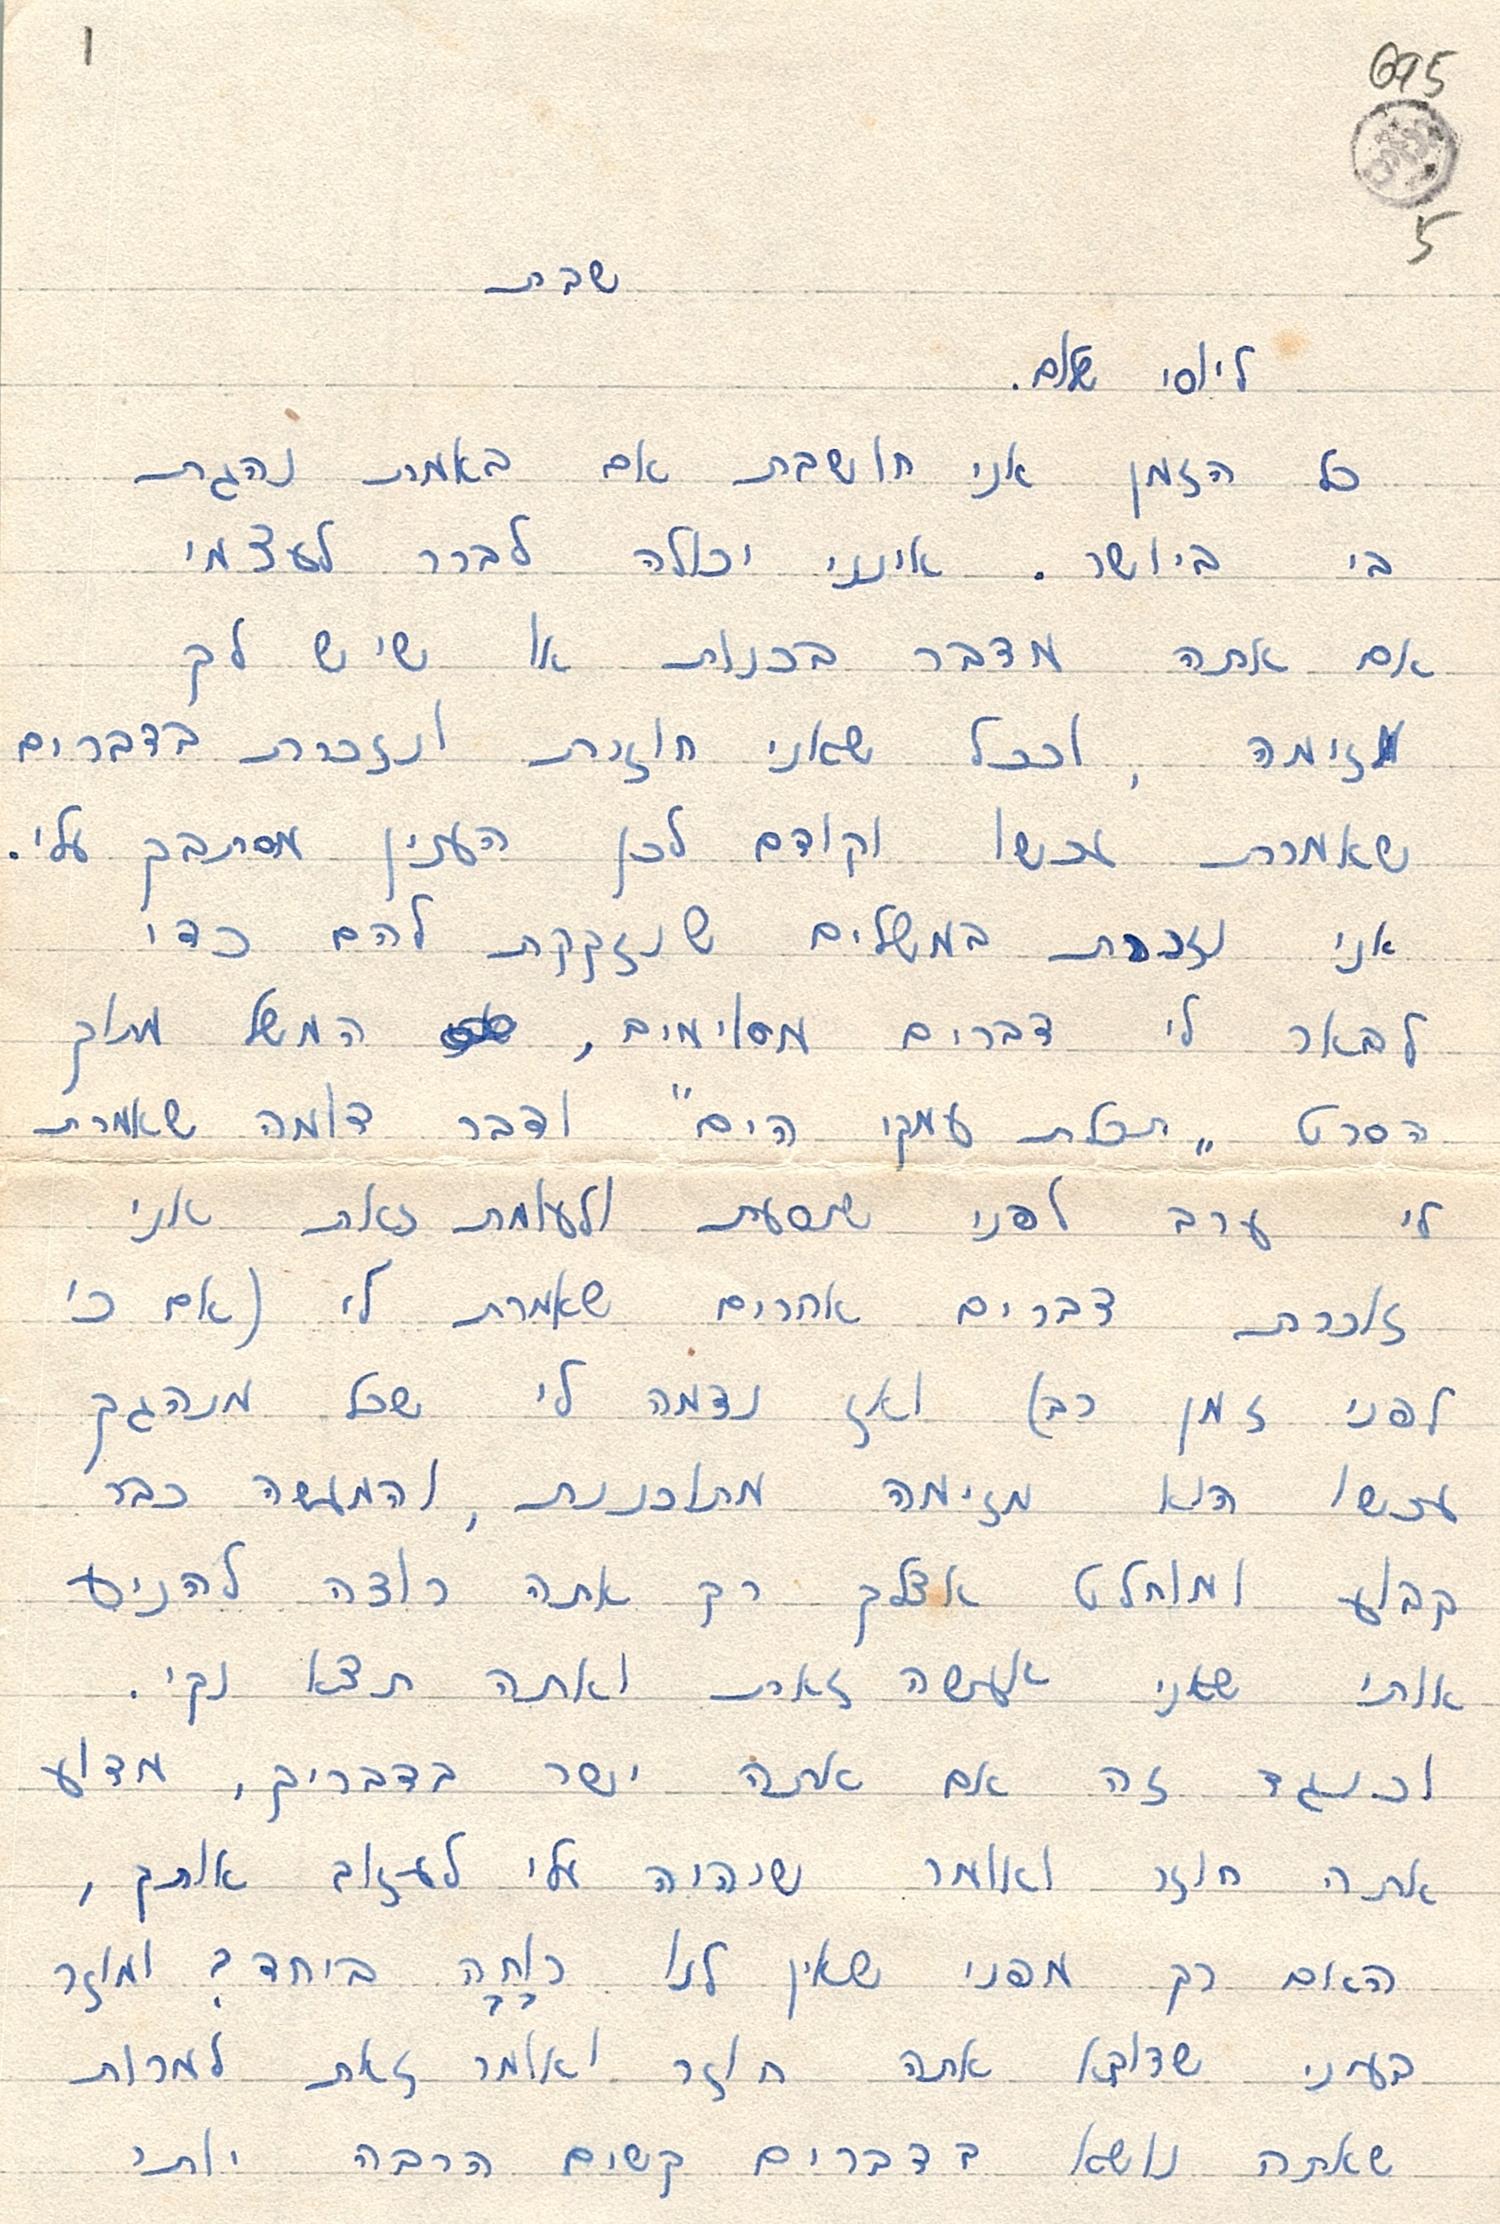 1
695
5
שבת
ליוסי שלום.
כל הזמן אני חושבת אם באמת נהגת
בי ביושר. אינני יכולה לברר לעצמי
אם אתה מדבר בכנות או שיש לך
מזימה, וככל שאני חוזרת ונזכרת בדברים
שאמרת עכשו וקודם לכן הענין מסתבך עלי.
אני נזכרת במשלים שנזקקת להם כדי
לבאר לי דברים מסוימים, המשל מתוך
הסרט "תכלת עמקי הים" ודבר דומה שאמרת
לי ערב לפני שנסעת ולעומת זאת אני
זוכרת דברים אחרים שאמרת לי (אם כי
לפני זמן רב) ואז נדמה לי שכל מנהגך
עכשו הוא מזימה מתוכננת, והמעשה כבר
קבוע ומוחלט אצלך רק אתה רוצה להניע
אותי שאני אעשה זאת ואתה תצא נקי.
וכנגד זה אם אתה ישר בדבריך, מדוע
אתה חוזר ואומר שיהיה עלי לעזוב אותך,
האם רק מפני שאין לנו רוחה ביחד? ומוזר
בעיני שדוקא אתה חוזר ואומר זאת למרות
שאתה נושא בדברים קשים הרבה יותר